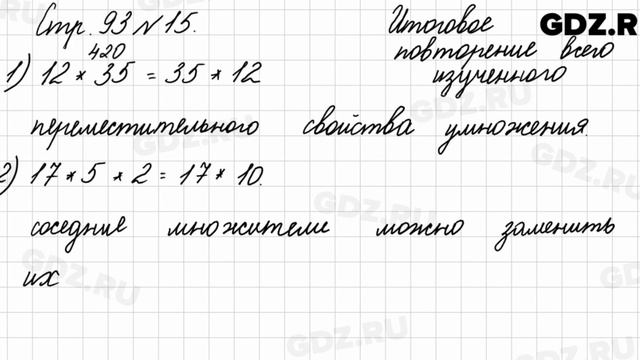 Стр. 93 № 15.
Итоговое
повторение всего
изученного
GDZ.R
420
1) 12 * 35 = 35 * 12
переместительного свойства умножения.
2) 17 * 5 * 2 = 17 * 10.
соседние множители можно заменить
их
GDZ.RU
GDZ.RU
GDZ.RU
GDZ.RU
GDZ.RU